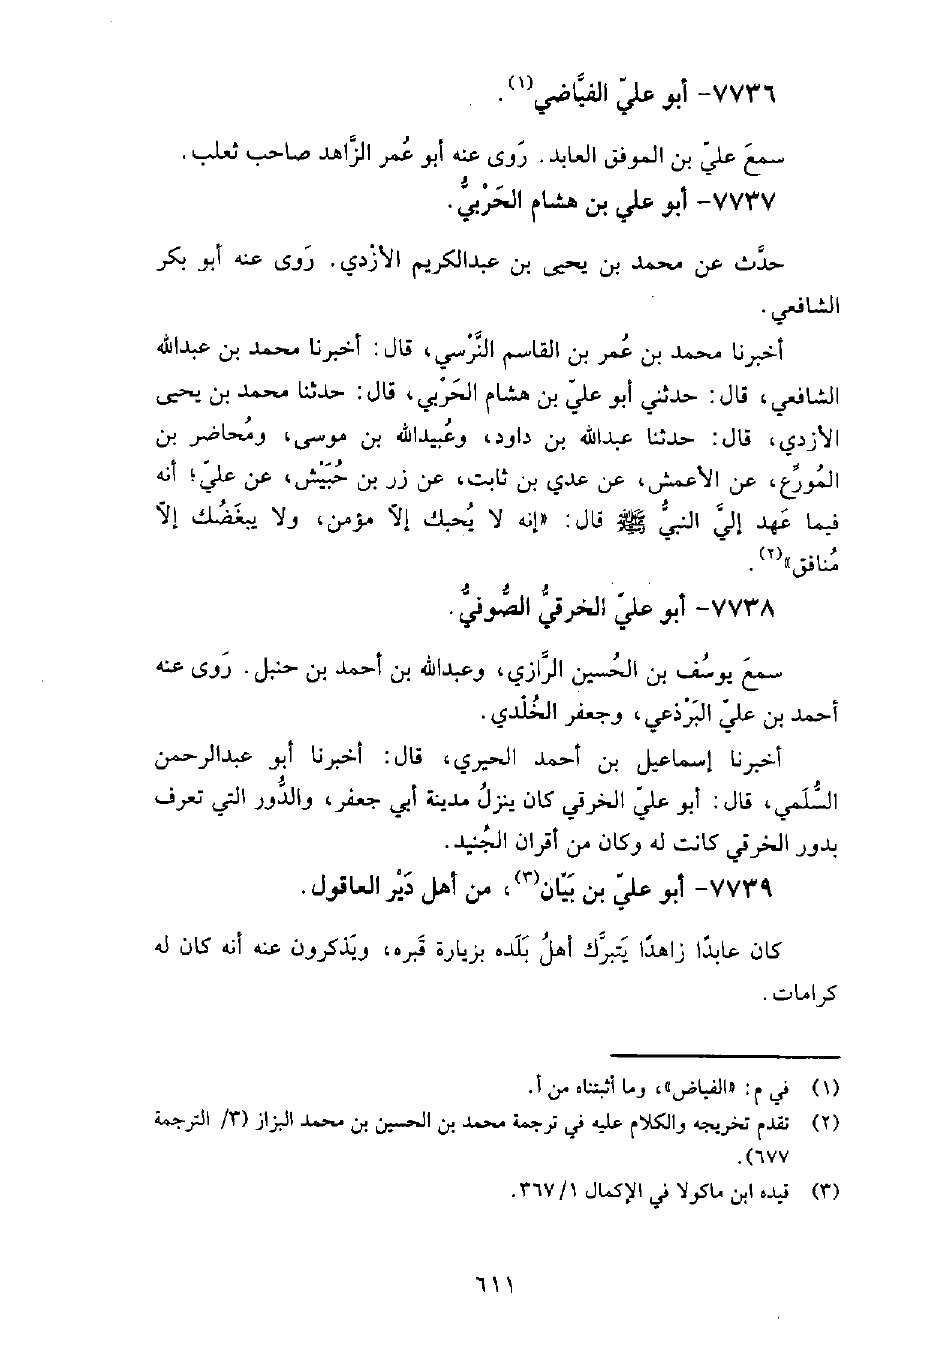 ٧٧٣٦- أبو عليّ الفيَّاضي(١).
سمعَ عليّ بن الموفق العابد. رَوى عنه أبو عُمر الزَّاهد صاحب ثعلب.
٧٧٣٧- أبو علي بن هشام الحَرْبيُّ.
حدَّث عن محمد بن يحيى بن عبدالكريم الأزْدي. رَوى عنه أبو بكر
الشافعي.
أخبرنا محمد بن عُمر بن القاسم النَّرْسي، قال: أخبرنا محمد بن عبدالله
الشافعي، قال: حدثني أبو عليّ بن هشام الحَرْبي، قال: حدثنا محمد بن يحيى
الأزدي، قال: حدثنا عبدالله بن داود، وعُبيدالله بن موسى، ومُحاضر بن
المُورِّع، عن الأعمش، عن عدي بن ثابت، عن زر بن حُبَيْش، عن عليّ؛ أنه
فيما عَهد إليَّ النبيُّ ﷺ قال: «إنه لا يُحبك إلاّ مؤمن، ولا يبغَضُك إلاّ
مُنافق»(٢).
٧٧٣٨- أبو عليّ الخرقيُّ الصُّوفيُّ.
سمعَ يوسُف بن الحُسين الرَّازي، وعبدالله بن أحمد بن حنبل. رَوى عنه
أحمد بن عليّ البَرْذعي، وجعفر الخُلْدي.
أخبرنا إسماعيل بن أحمد الحيري، قال: أخبرنا أبو عبدالرحمن
السُّلَمي، قال: أبو عليّ الخرقي كان ينزلُ مدينة أبي جعفر، والدُّور التي تعرف
بدور الخرقي كانت له وكان من أقران الجُنيد.
٧٧٣٩- أبو عليّ بن بَيّان(٣)، من أهل دَيْر العاقول.
كان عابدًا زاهدًا يَتبرَّك أهلُ بَلَده بزيارة قَبره، ويَذكرون عنه أنه كان له
كرامات.
(١) في م: «الفياض»، وما أثبتناه من أ.
(٢) تقدم تخريجه والكلام عليه في ترجمة محمد بن الحسين بن محمد البزاز (٣/ الترجمة
٦٧٧).
(٣) قيده ابن ماكولا في الإكمال ١/ ٣٦٧.
٦١١